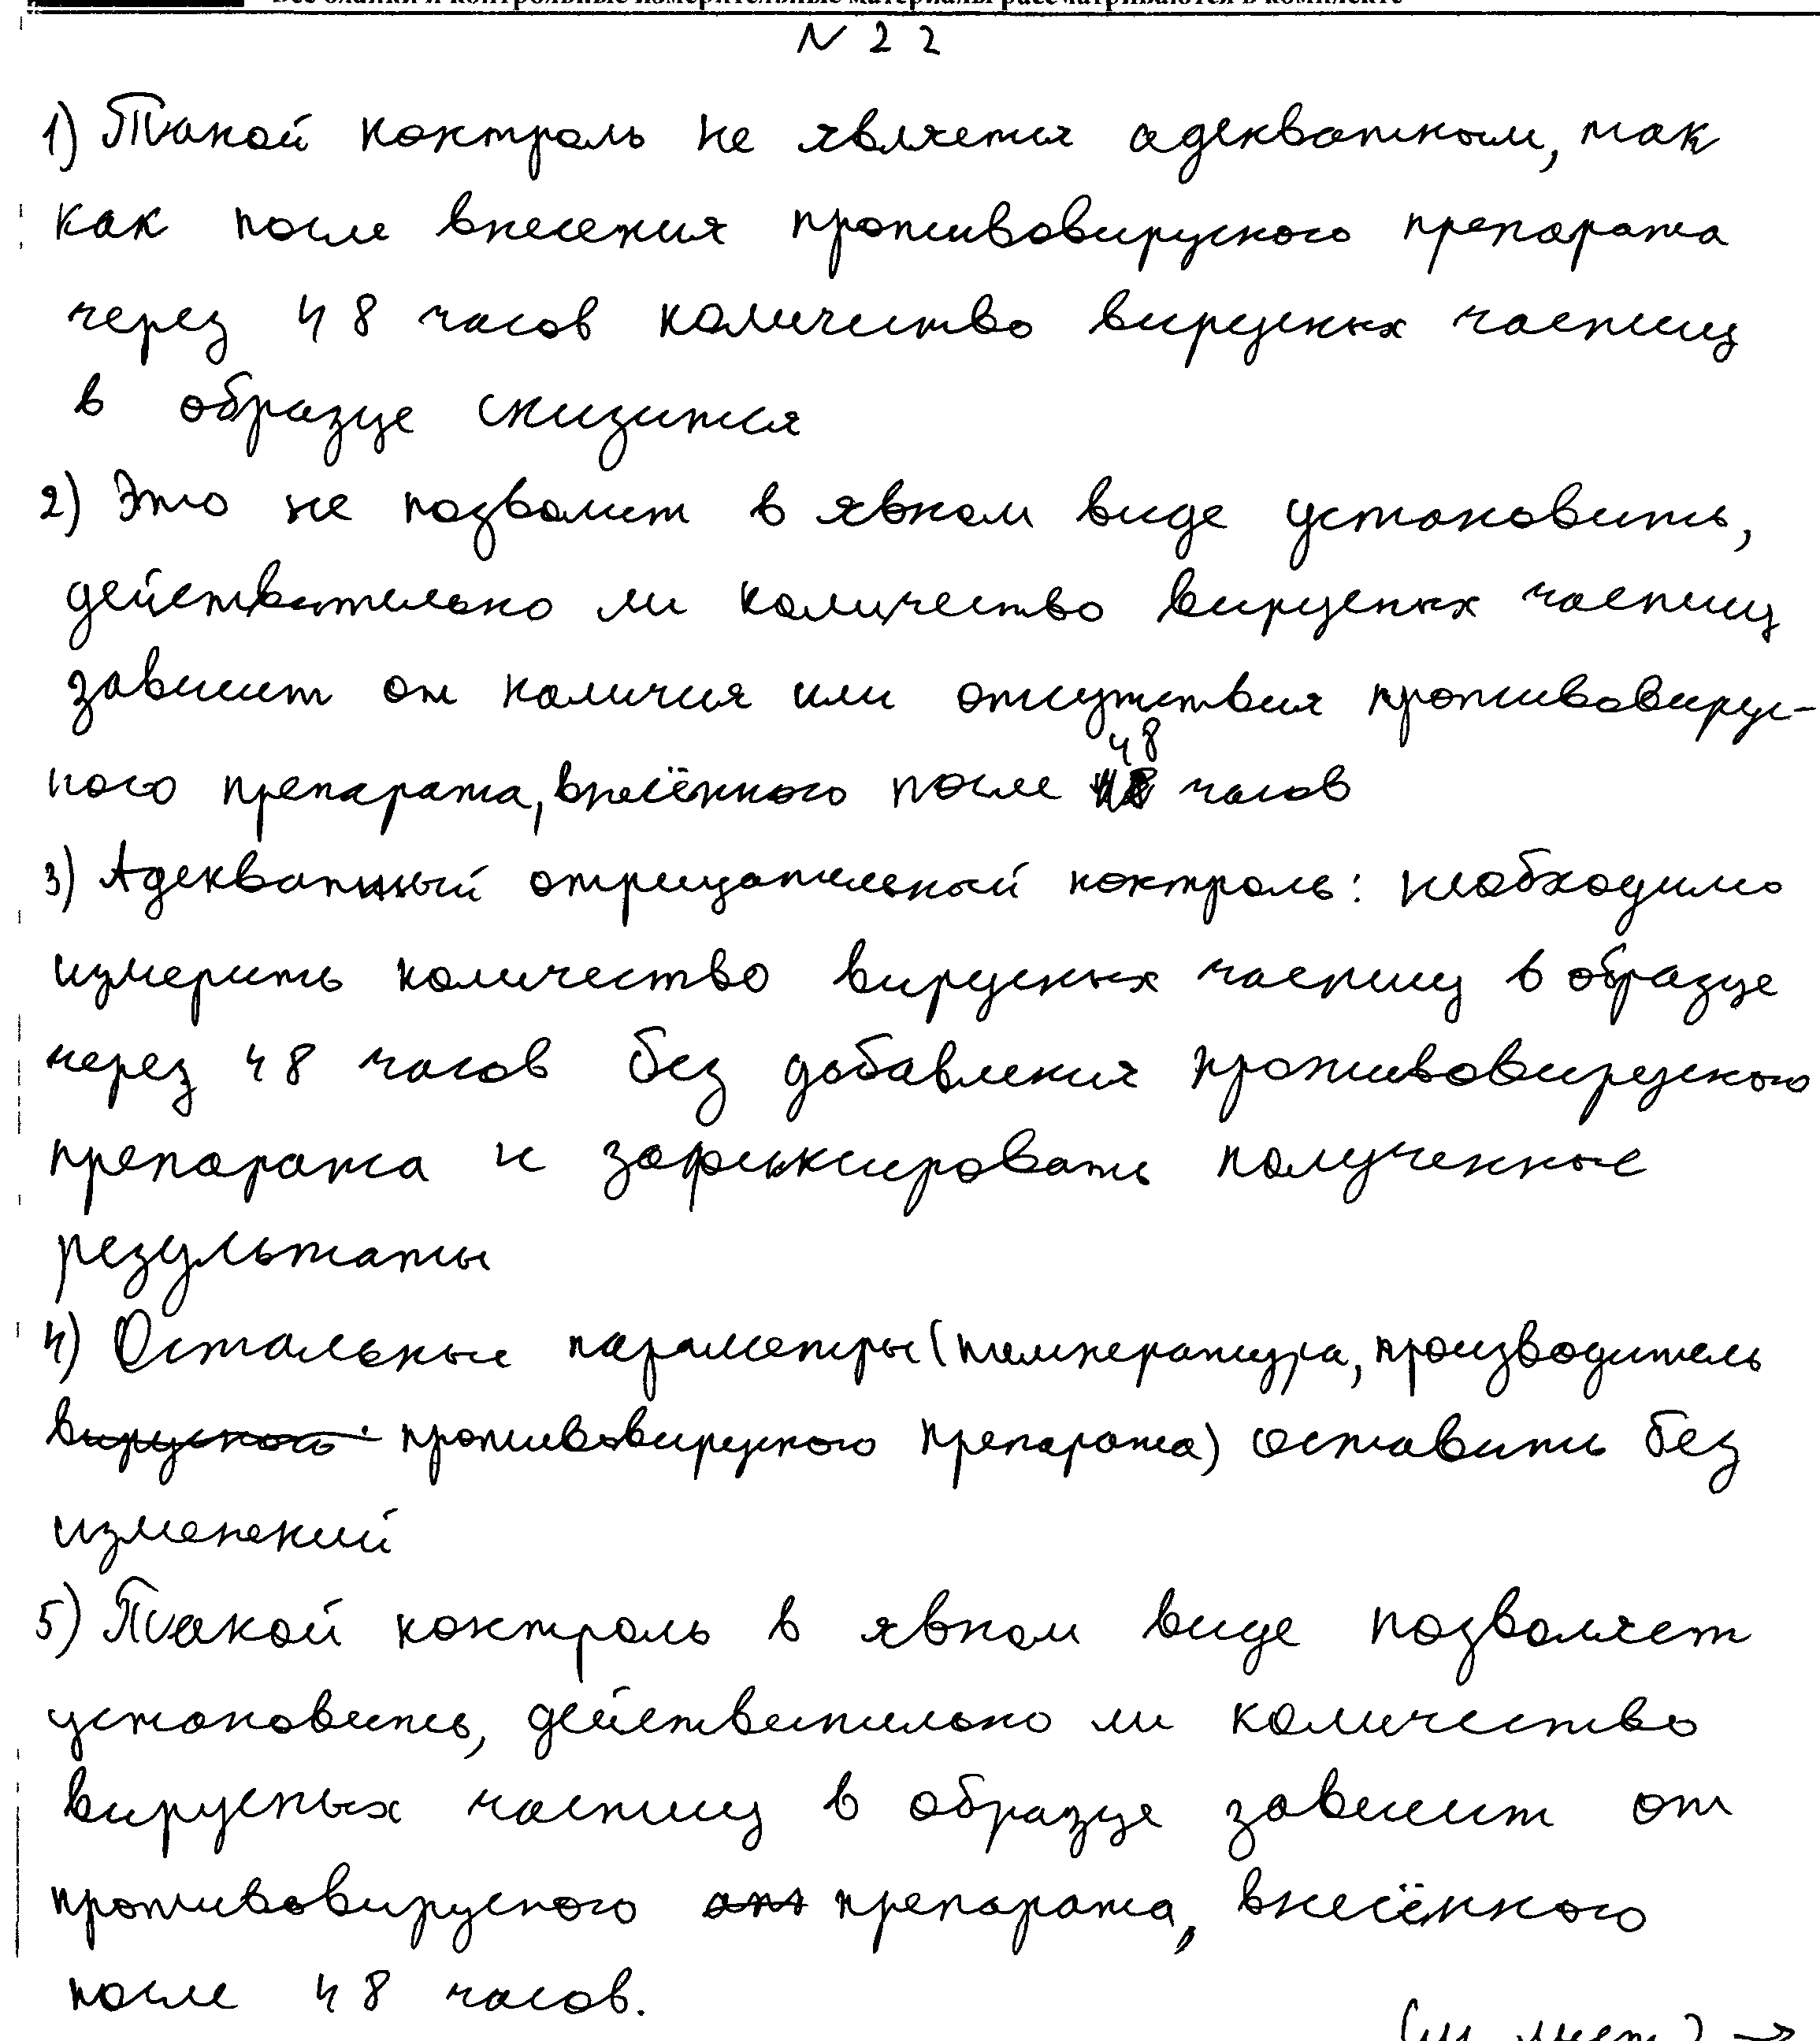 Все бланки и контрольные измерительные материалы рассматриваются в комплекте
N 22
1) Такой контроль не является адекватным, так
как после внесения противовирусного препарата
через 48 часов количество вирусных частиц
в образце снизится
2) Это не позволит в явном виде установить,
действительно ли количество вирусных частиц
зависит от наличия или отсутствия противовирус-
ного препарата, внесённого после 48 часов
3) Адекватный отрицательный контроль: необходимо
измерить количество вирусных частиц в образце
через 48 часов без добавления противовирусного
препарата и зафиксировать полученные
результаты
4) Остальные параметры (температура, производитель
вирусного противовирусного препарата) оставить без
изменений
5) Такой контроль в явном виде позволяет
установить, действительно ли количество
вирусных частиц в образце зависит от
противовирусного препарата, внесённого
после 48 часов.